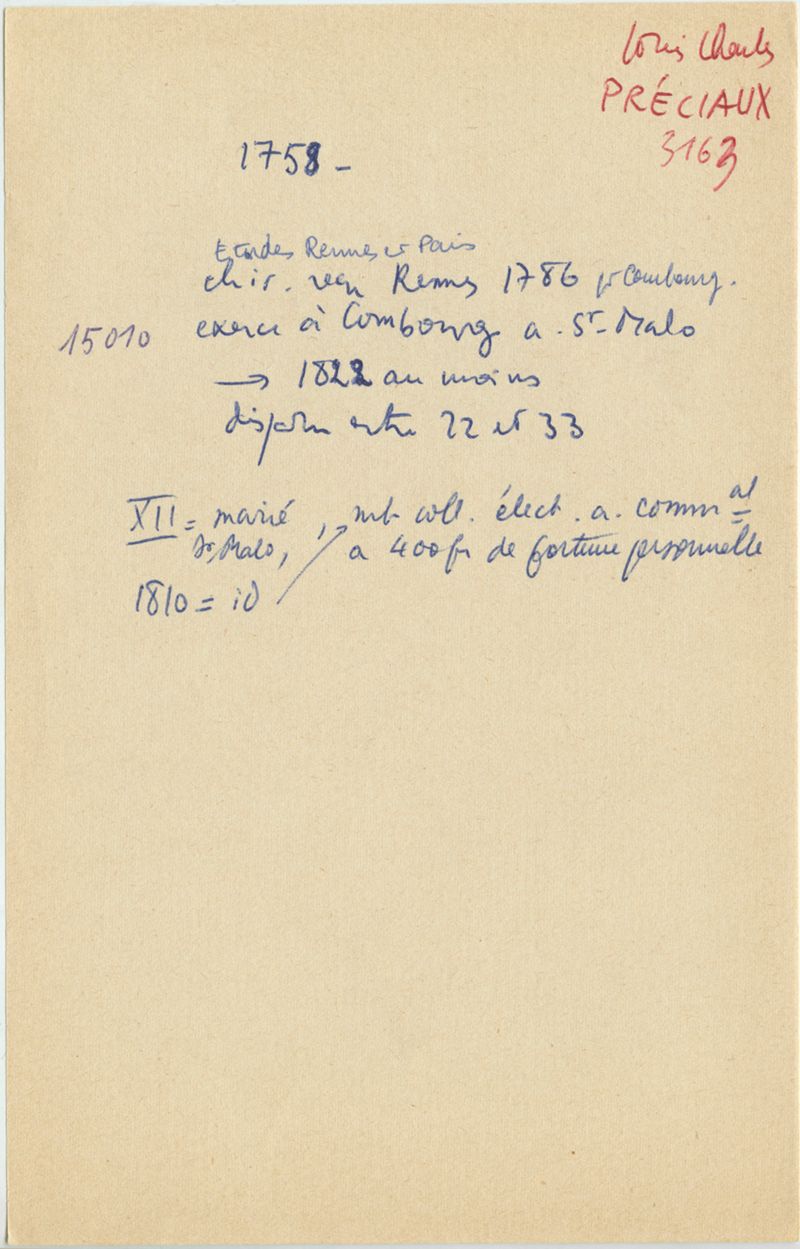 Louis Charles
PRÉCIAUX
3163
1758 -
Etudes Rennes et Paris
chir. reçu Rennes 1786 pr Combourg.
15010 exerce à Combourg a. St-Malo
→ 1822 au moins
disparu entre 22 et 33
XII = marié, mb coll. élect. a. commal
St Malo, a 400 fr de fortune personnelle
1810 = id